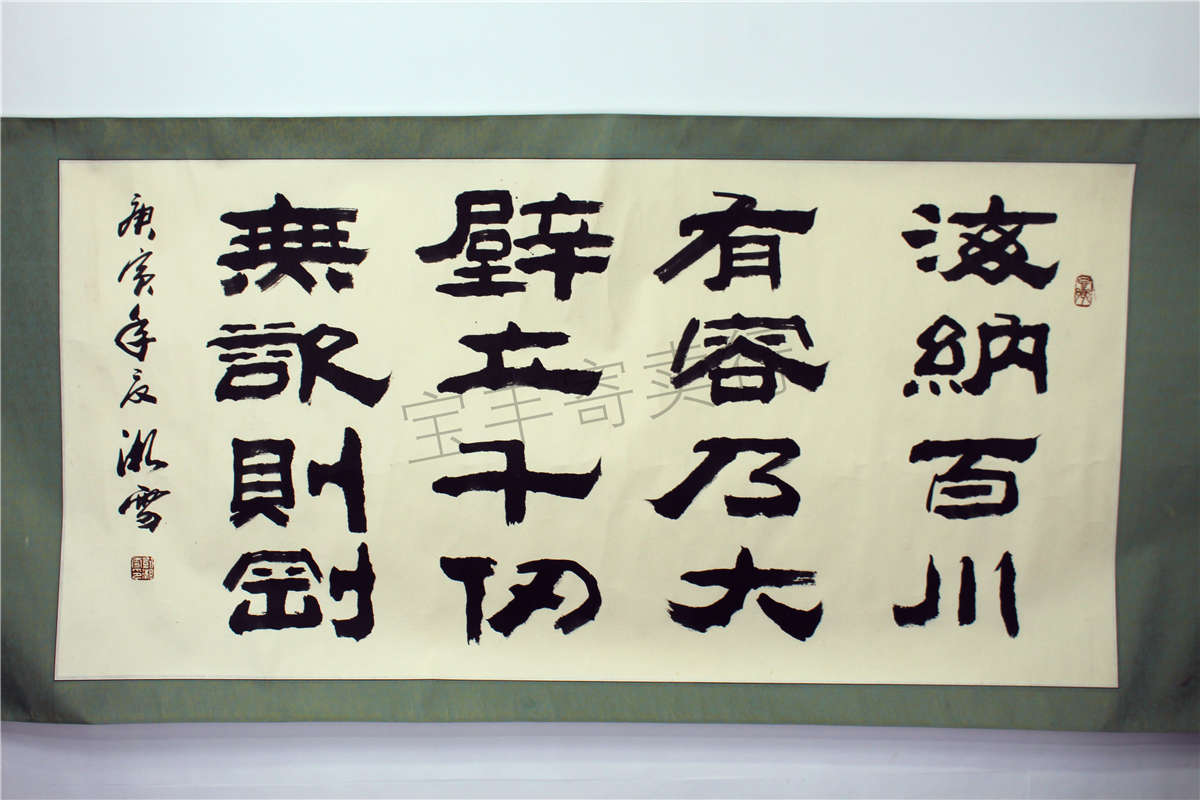 海納百川
有容乃大
壁立千仞
無欲則剛
庚寅年 雪
宝丰寄卖行